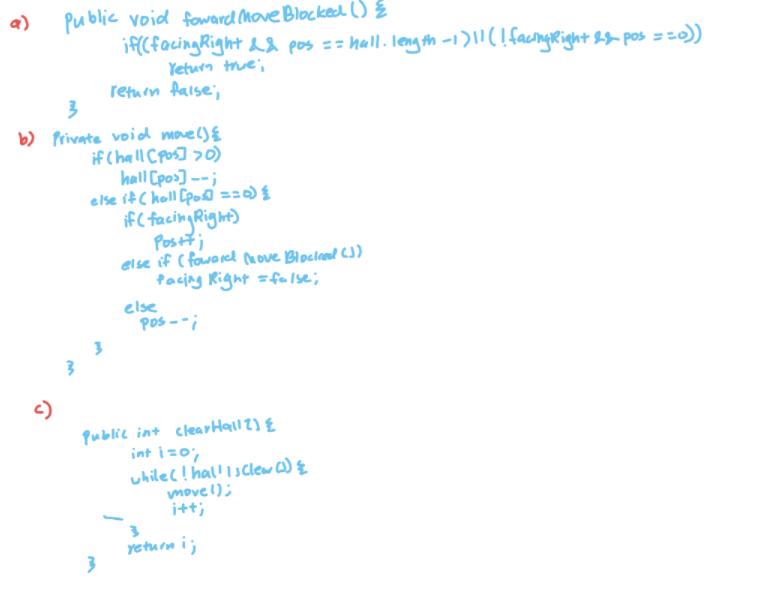 a) Public void fowardMoveBlocked() {
if((facingRight && pos == hall.length -1)||(!facingRight && pos ==0))
return true;
return false;
}
b) Private void move(){
if(hall[pos] >0)
hall[pos]--;
else if(hall[pos] ==0){
if(facingRight)
Pos++;
else if (foward Move Blocked())
facing Right = false;
else
pos--;
}
}
c)
Public int clearHall() {
int i=0;
while(!hallIsClear()){
move();
i++;
}
return i;
}